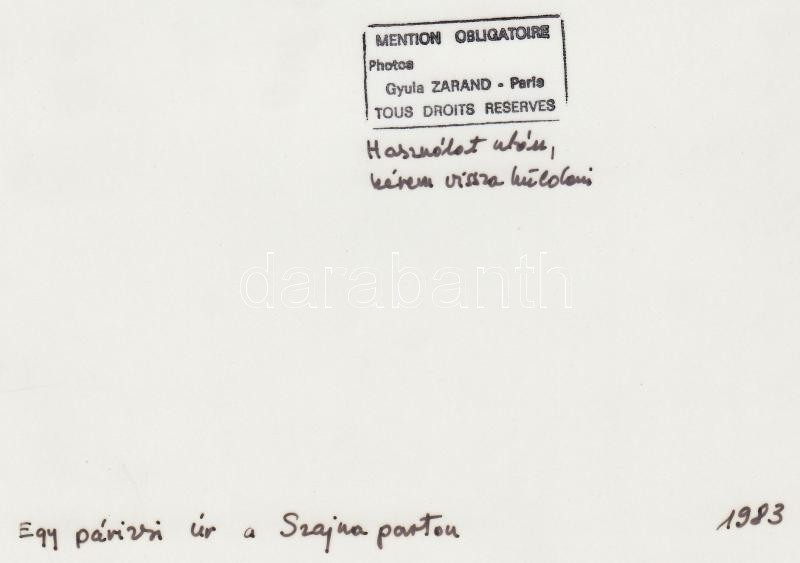 MENTION OBLIGATOIRE
Photos
Gyula ZARAND - Paris
TOUS DROITS RESERVES
Használat után,
kérem vissza küldeni
darabanth
Egy párizsi úr a Szajna parton
1983